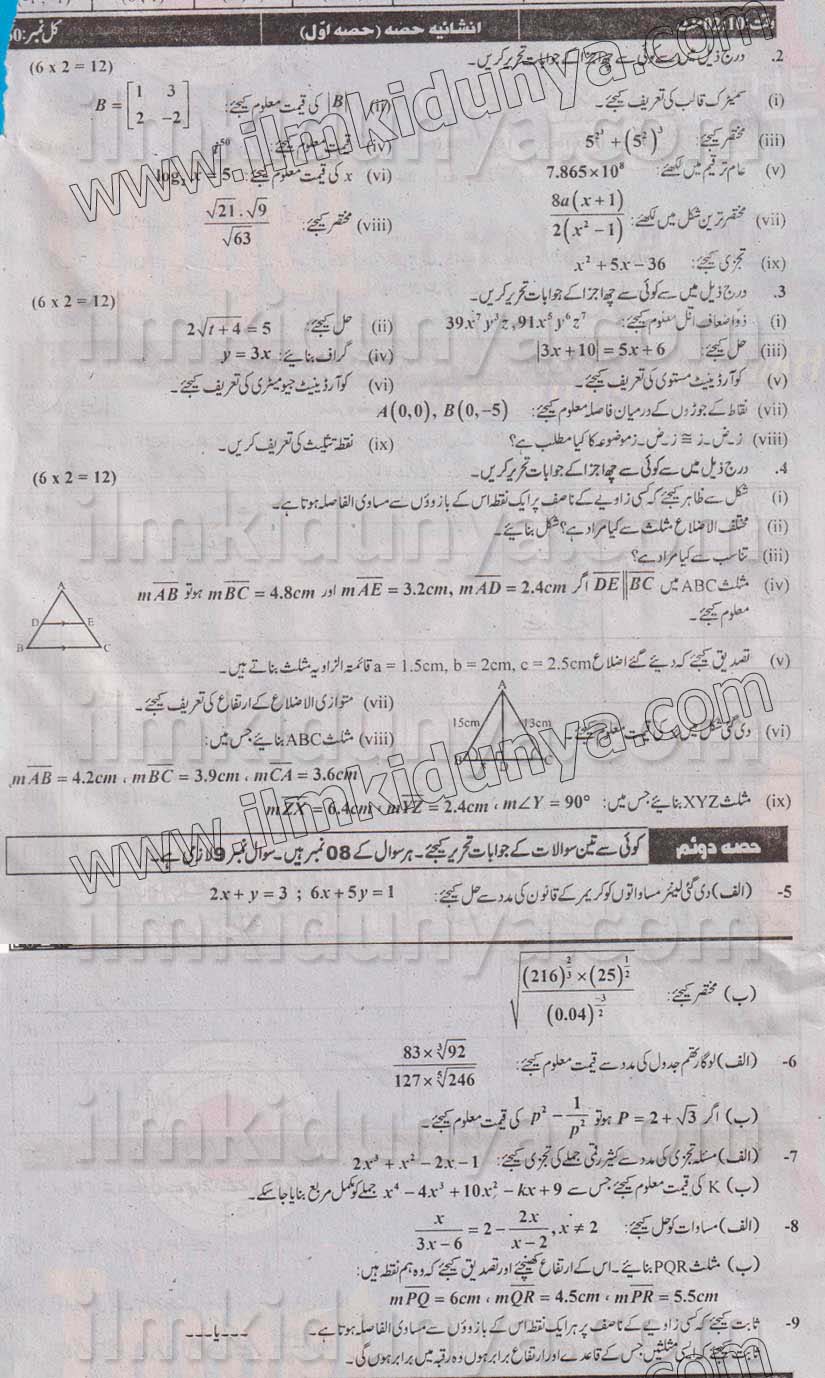 وقت: 02:10 گھنٹے انشائیہ حصہ (حصہ اوّل) کل نمبر: 60
2. درج ذیل میں سے کوئی سے چھ اجزا کے جوابات تحریر کریں۔ (6 x 2 = 12)
(i) سمیٹرک قالب کی تعریف کیجئے۔ (ii) |B| کی قیمت معلوم کیجئے: B = [1 3; 2 -2]
(iii) مختصر کیجئے: 5^{2^3} + (5^2)^3 (iv) قیمت معلوم کیجئے: i^{50}
(v) عام ترقیم میں لکھئے: 7.865×10^8 (vi) x کی قیمت معلوم کیجئے: log_2 x = 5
(vii) مختصر ترین شکل میں لکھئے: 8a(x+1) / 2(x^2−1) (viii) مختصر کیجئے: √21 . √9 / √63
(ix) تجزی کیجئے: x^2 + 5x − 36
3. درج ذیل میں سے کوئی سے چھ اجزا کے جوابات تحریر کریں۔ (6 x 2 = 12)
(i) ذو اضعاف اقل معلوم کیجئے: 39x^7 y^3 z , 91x^5 y^6 z^7 (ii) حل کیجئے: 2√(t+4) = 5
(iii) حل کیجئے: |3x+10| = 5x+6 (iv) گراف بنائیے: y = 3x
(v) کوآرڈینیٹ مستوی کی تعریف کیجئے۔ (vi) کوآرڈینیٹ جیومیٹری کی تعریف کیجئے۔
(vii) نقاط کے جوڑوں کے درمیان فاصلہ معلوم کیجئے: A(0,0), B(0,−5)
(viii) ز۔ض۔ز ≅ ز۔ض۔ز موضوعہ کا کیا مطلب ہے؟ (ix) نقطہ تثلیث کی تعریف کریں۔
4. درج ذیل میں سے کوئی سے چھ اجزا کے جوابات تحریر کریں۔ (6 x 2 = 12)
(i) شکل سے ظاہر کیجئے کہ کسی زاویے کے ناصف پر ایک نقطہ اس کے بازوؤں سے مساوی الفاصلہ ہوتا ہے۔
(ii) مختلف الاضلاع مثلث سے کیا مراد ہے؟ شکل بنائیے۔
(iii) تناسب سے کیا مراد ہے؟
(iv) مثلث ABC میں DE||BC اگر mAD = 2.4cm , mAE = 3.2cm اور mBC = 4.8cm ہو تو mAB
معلوم کیجئے۔
A
D E
B C
(v) تصدیق کیجئے کہ دیے گئے اضلاع a = 1.5cm, b = 2cm, c = 2.5cm قائمتہ الزاویہ مثلث بناتے ہیں۔
(vi) دی گئی شکل میں کی قیمت معلوم کیجئے۔ (vii) متوازی الاضلاع کے ارتفاع کی تعریف کیجئے۔
A
15cm 13cm
B D C
(viii) مثلث ABC بنائیے جس میں:
mAB = 4.2cm ، mBC = 3.9cm ، mCA = 3.6cm
(ix) مثلث XYZ بنائیے جس میں: mZX = 6.4cm ، mYZ = 2.4cm ، m∠Y = 90°
حصہ دوئم کوئی سے تین سوالات کے جوابات تحریر کیجئے۔ ہر سوال کے 08 نمبر ہیں۔ سوال نمبر 9 لازمی ہے۔
5- (الف) دی گئی لینئر مساواتوں کو کریمر کے قانون کی مدد سے حل کیجئے: 2x + y = 3 ; 6x + 5y = 1
(ب) مختصر کیجئے: √((216)^{2/3} × (25)^{1/2} / (0.04)^{-3/2})
6- (الف) لوگارتھم جدول کی مدد سے قیمت معلوم کیجئے: 83 × ∛92 / 127 × ⁵√246
(ب) اگر P = 2 + √3 ہو تو p^2 − 1/p^2 کی قیمت معلوم کیجئے۔
7- (الف) مسئلہ تجزی کی مدد سے کثیر رقمی جملے کی تجزی کیجئے: 2x^3 + x^2 − 2x − 1
(ب) K کی قیمت معلوم کیجئے جس سے x^4 − 4x^3 + 10x^2 − kx + 9 جملے کو مکمل مربع بنایا جا سکے۔
8- (الف) مساوات کو حل کیجئے: x/(3x−6) = 2 − 2x/(x−2) , x ≠ 2
(ب) مثلث PQR بنائیے۔ اس کے ارتفاع کھینچئے اور تصدیق کیجئے کہ وہ ہم نقطہ ہیں:
mPQ = 6cm ، mQR = 4.5cm ، mPR = 5.5cm
9- ثابت کیجئے کہ کسی زاویے کے ناصف پر ہر ایک نقطہ اس کے بازوؤں سے مساوی الفاصلہ ہوتا ہے۔ ---یا---
ثابت کیجئے کہ ایسی مثلثیں جس کے قاعدے اور ارتفاع برابر ہوں وہ رقبہ میں برابر ہوں گی۔
www.ilmkidunya.com